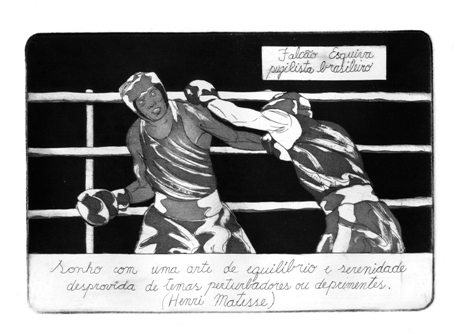 Falcão Esquiva
pugilista brasileiro
Sonho com uma arte de equilíbrio e serenidade
desprovida de temas perturbadores ou deprimentes.
(Henri Matisse)